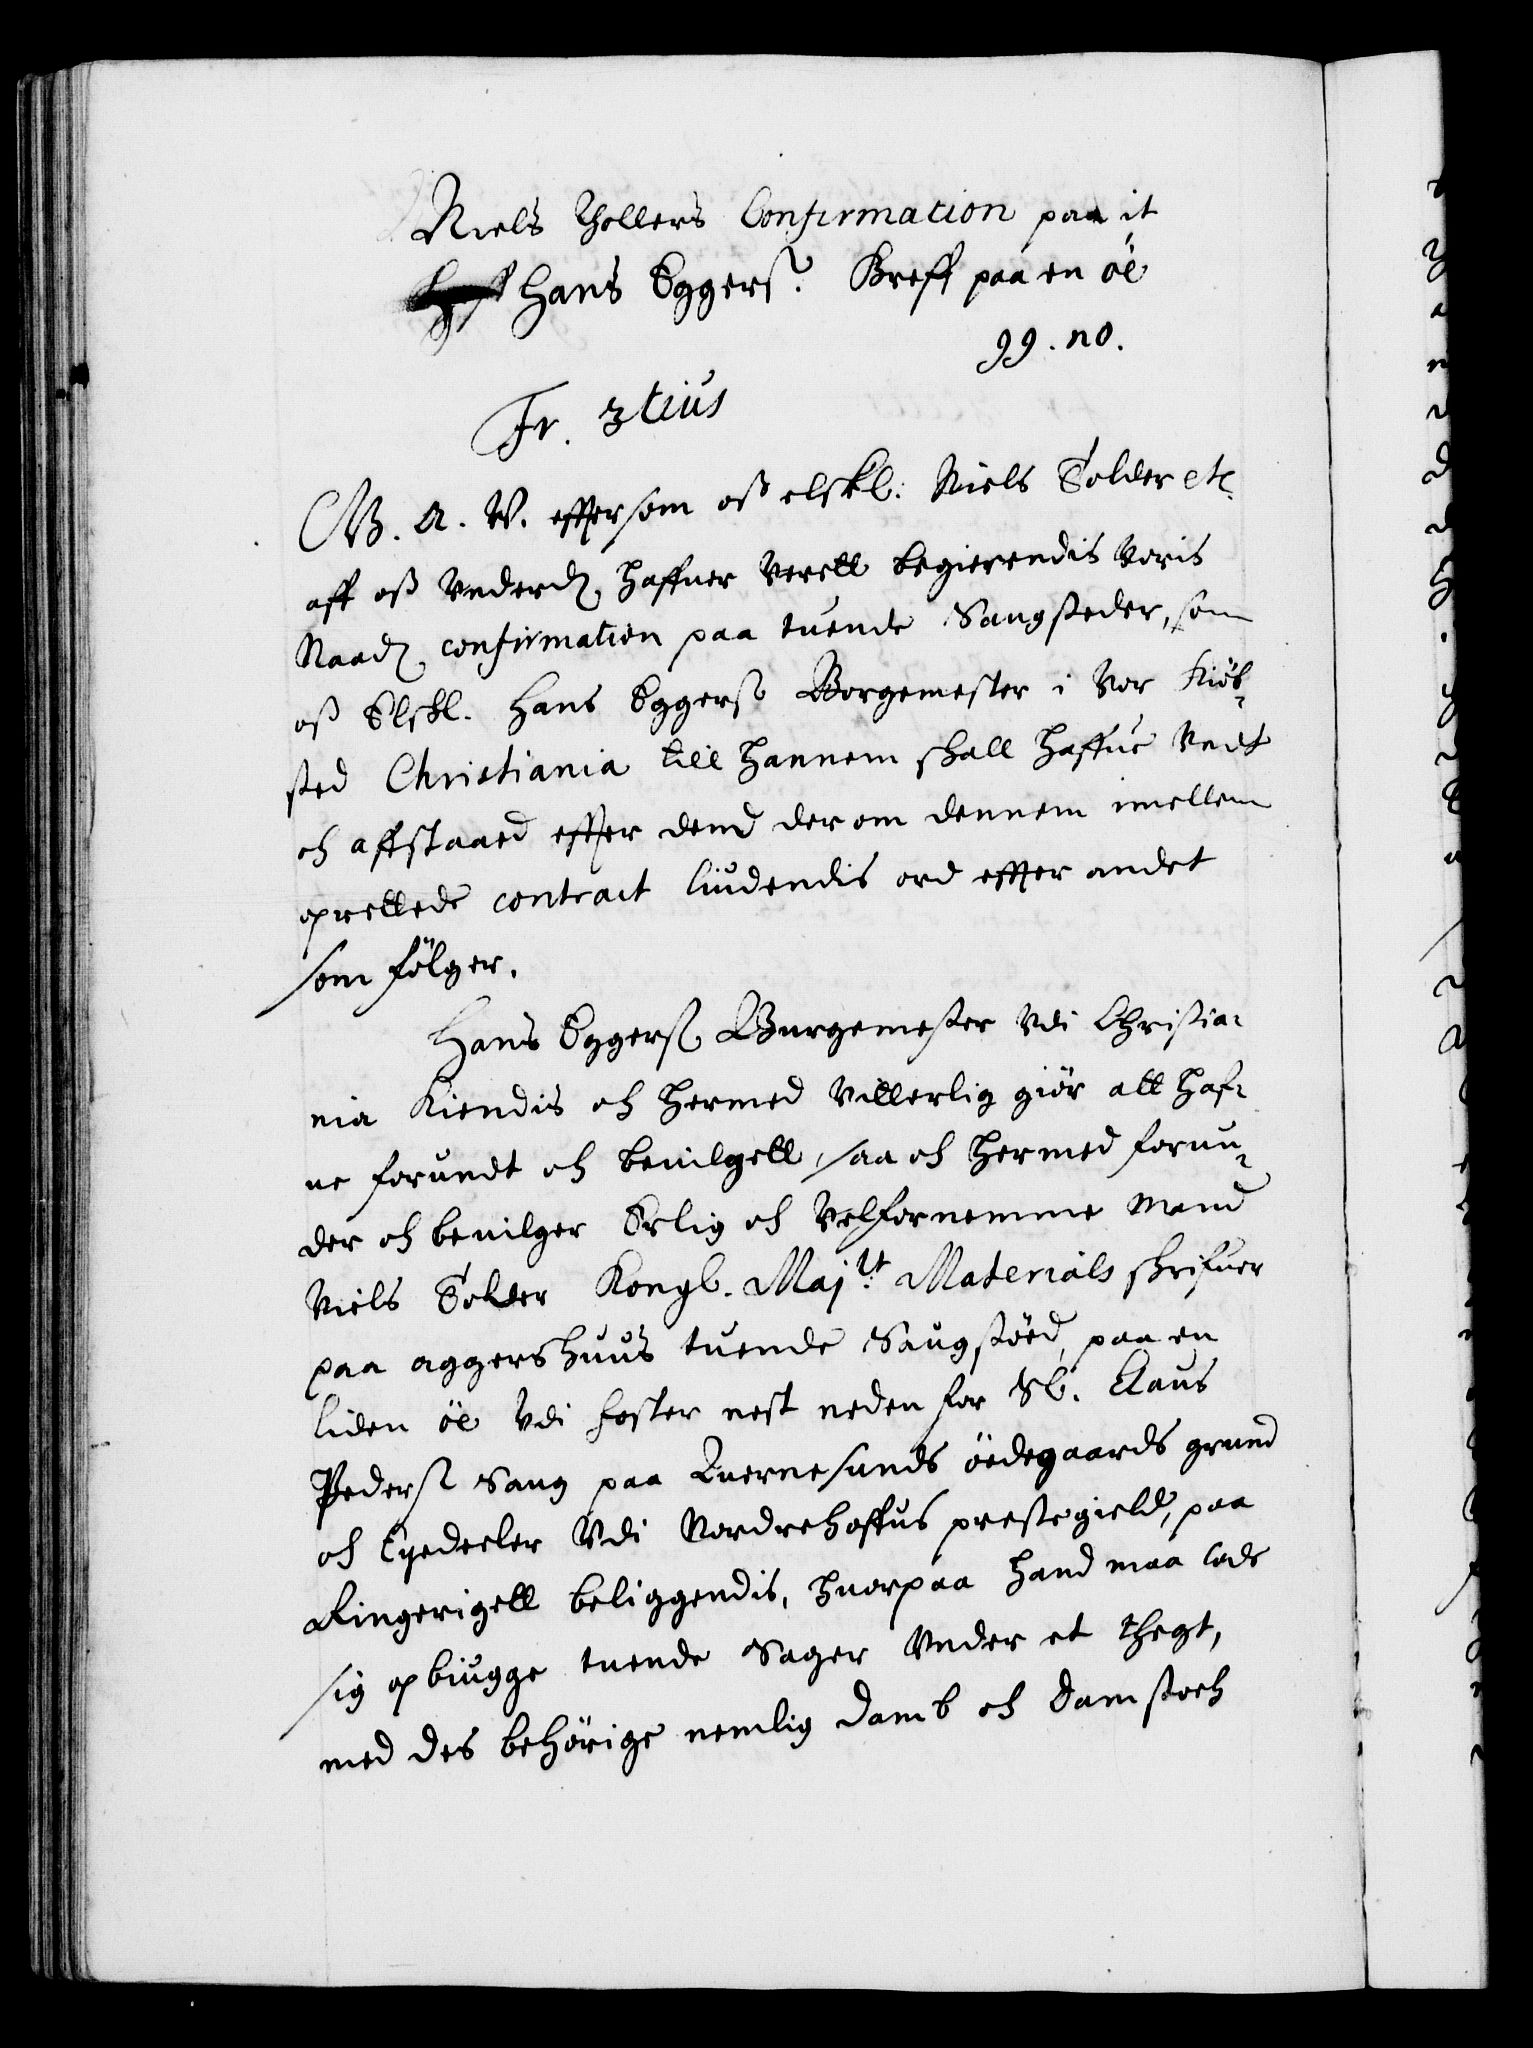 Niels Thollers Confirmation paa it
Hans Eggerss. Breff paa en øe
99. no.
Fr. 3tius
G. A. V. effter som oss elskl: Niels Tolder etc.
aff oss Underd. haffuer veret begierendis voris
Naad. confirmation paa tuende Saugsteder, som
oss Elskl. Hans Eggerss Borgemester i vor kiøb-
sted Christiania till hannem skall haffue undt
och affstaaed effter dend derom dennem imellem
oprettede contract liudendis ord effter andet
som følger.
Hans Eggerss Burgemester udi Christia-
nia Kiendis och hermed vitterlig giør att haf-
ue forundt och beuilgett, saa och hermed forun-
der och beuilger Erlig och velfornemme Mand
Niels Tolder Kongl. Maj.tt Materials skrifuer
paa aggershuus tuende Saugstøed, paa en
liden øe udi foster nest neden for Sl. Claus
Pederss Saug paa Querne sunds ødegaards grund
och Eyedeeler udi Nordrehoffus prestegield, paa
Ringerigett beliggendis, huorpaa hand maa lade
sig opbiugge tuende Sager under et thegt,
med des behørige nemlig damb och Damstoch